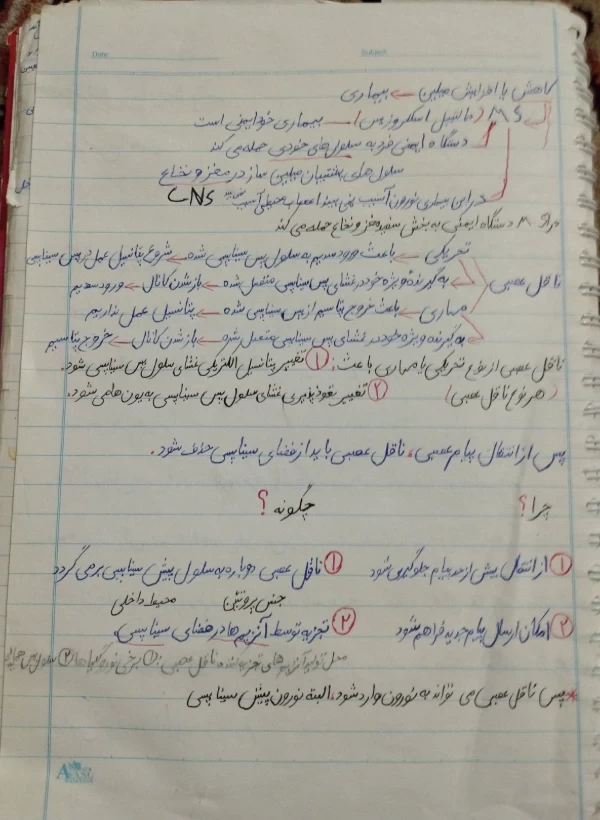 Date:
Subject:
کاهش یا افزایش میلین ← بیماری
MS (مالتیپل اسکلروزیس) ← بیماری خودایمنی است
دستگاه ایمنی فرد به سلول های خودی حمله می کند
سلول های پشتیبان میلین ساز در مغز و نخاع
در این بیماری نورون آسیب نمی بیند اعصاب محیطی آسیب نمی بینند CNS
در MS دستگاه ایمنی به بخش سفید مغز و نخاع حمله می کند
ناقل عصبی
تحریکی ← باعث ورود سدیم به سلول پس سیناپسی شده ← شروع پتانسیل عمل در پس سیناپسی
به گیرنده ویژه خود در غشای پس سیناپسی متصل شده ← باز شدن کانال ← ورود سدیم
مهاری ← باعث خروج پتاسیم از پس سیناپسی شده ← پتانسیل عمل نداریم
به گیرنده ویژه خود در غشای پس سیناپسی متصل شده ← باز شدن کانال ← خروج پتاسیم
ناقل عصبی از نوع تحریکی یا مهاری باعث: ① تغییر پتانسیل الکتریکی غشای سلول پس سیناپسی شود.
(هر نوع ناقل عصبی) ② تغییر نفوذپذیری غشای سلول پس سیناپسی به یون ها می شود.
پس از انتقال پیام عصبی، ناقل عصبی باید از فضای سیناپسی حذف شود.
چرا؟ چگونه؟
① از انتقال بیش از حد پیام جلوگیری شود ① ناقل عصبی دوباره به سلول پیش سیناپسی برمی گردد
جنس پروتئین محیط داخلی
② امکان ارسال پیام جدید فراهم شود ② تجزیه توسط آنزیم ها در فضای سیناپسی
محل تولید آنزیم های تجزیه کننده ناقل عصبی: ① برخی نوروگلیاها ②
*پس ناقل عصبی می تواند به نورون وارد شود، البته نورون پیش سیناپسی